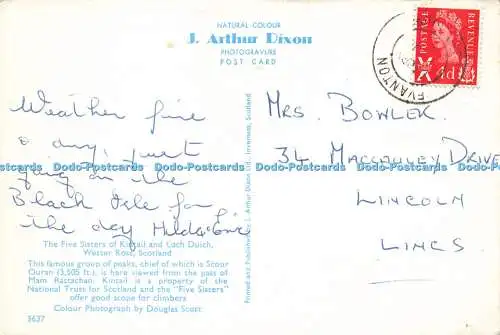 NATURAL COLOUR
J. Arthur Dixon
PHOTOGRAVURE
POST CARD
POSTAGE
REVENUE
4d
EVANTON
Weather fine
& dry, just
going on the
Black Isle for
the day Hilda & Eric
MRS. BOWLER.
34 MACCAULEY DRIVE
LINCOLN
LINCS
Dodo-Postcards Dodo-Postcards Dodo-Postcards Dodo-Postcards Dodo-Postcards Dodo-Postcards
Printed and Published by J. Arthur Dixon Ltd., Inverness, Scotland
The Five Sisters of Kintail and Loch Duich,
Wester Ross, Scotland
This famous group of peaks, chief of which is Scour
Ouran (3,505 ft.), is here viewed from the pass of
Mam Rattachan. Kintail is a property of the
National Trust for Scotland and the "Five Sisters"
offer good scope for climbers
Colour Photograph by Douglas Scott
5637